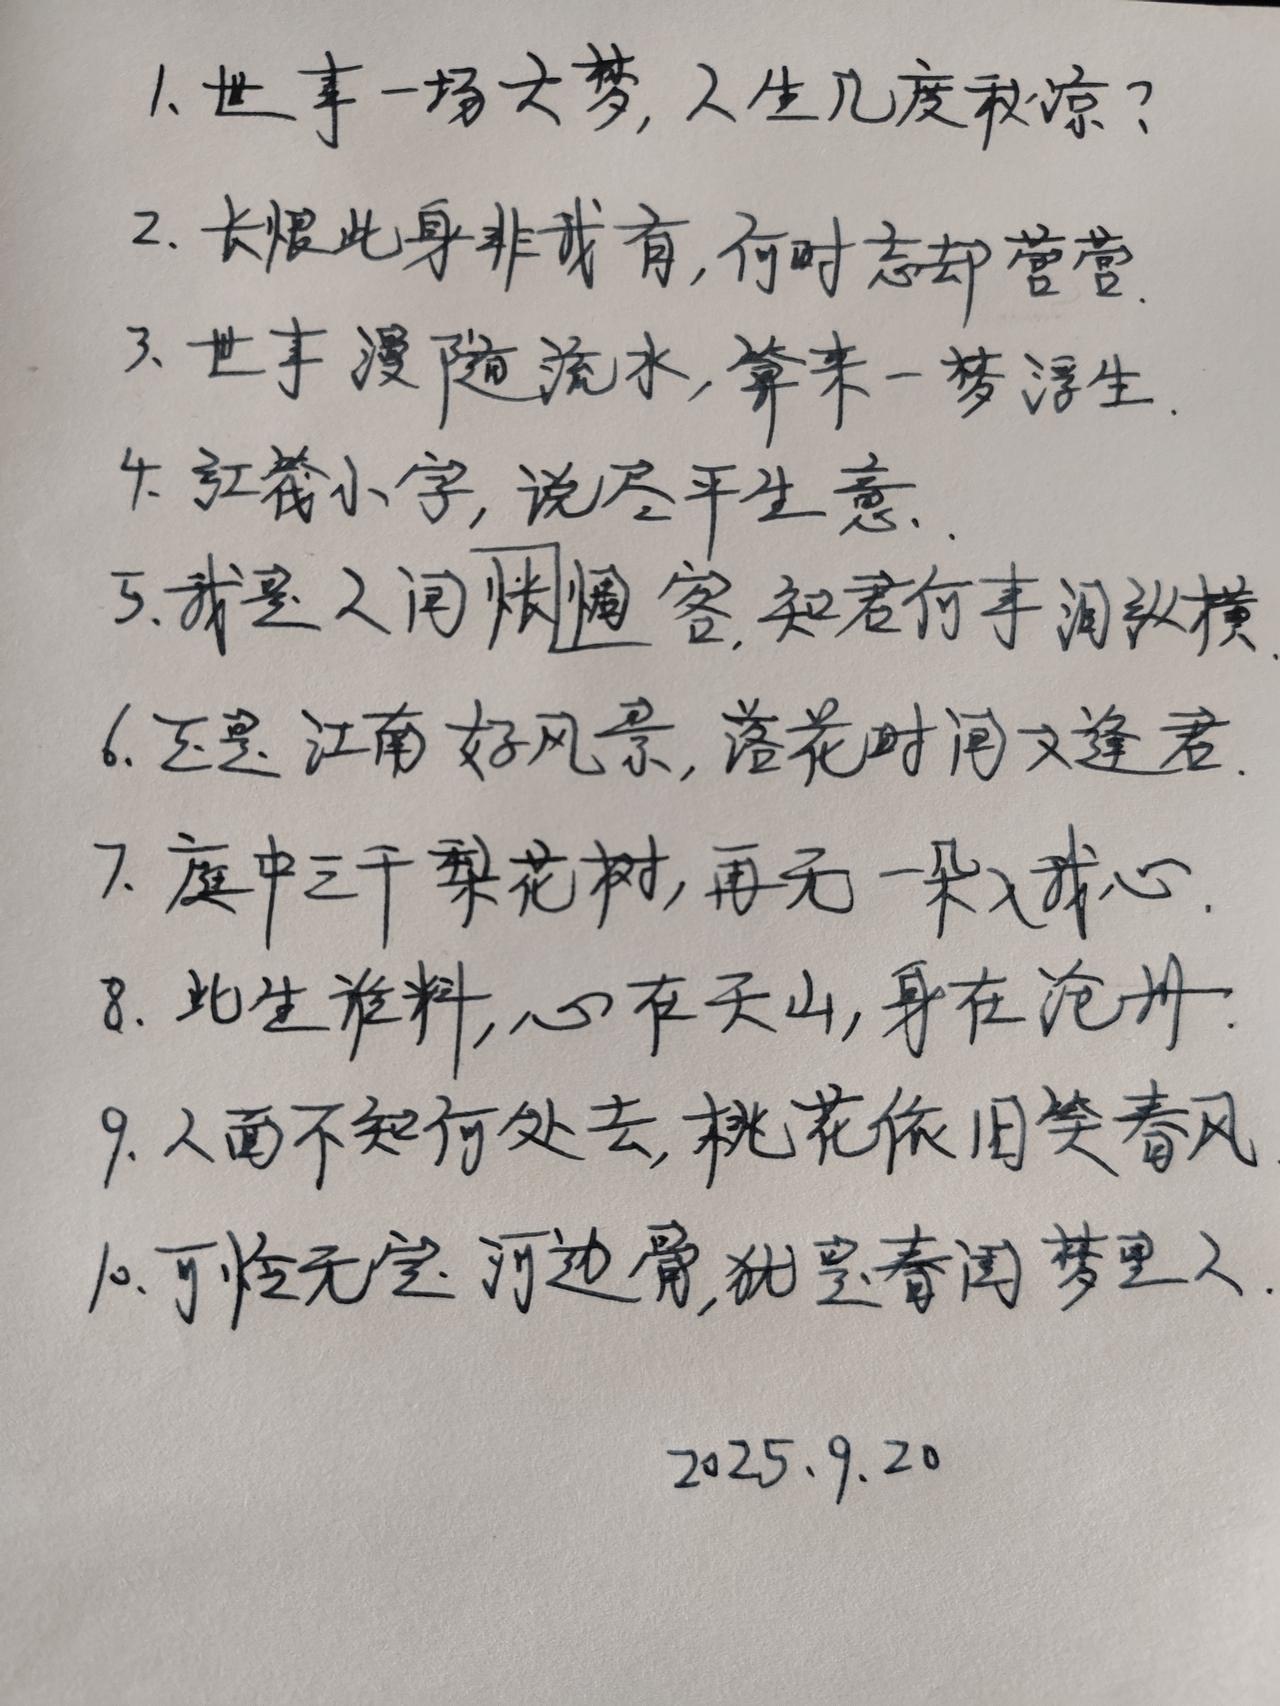 1. 世事一场大梦,人生几度秋凉?
2. 长恨此身非我有,何时忘却营营.
3. 世事漫随流水,算来一梦浮生.
4. 红笺小字,说尽平生意.
5. 我是人间惆怅客.知君何事泪纵横.
6. 还是江南好风景,落花时间又逢君.
7. 庭中三千梨花树,再无一朵入我心.
8. 此生谁料,心在天山,身在沧州.
9. 人面不知何处去,桃花依旧笑春风.
10. 可怜无定河边骨,犹是春闺梦里人.
2025.9.20